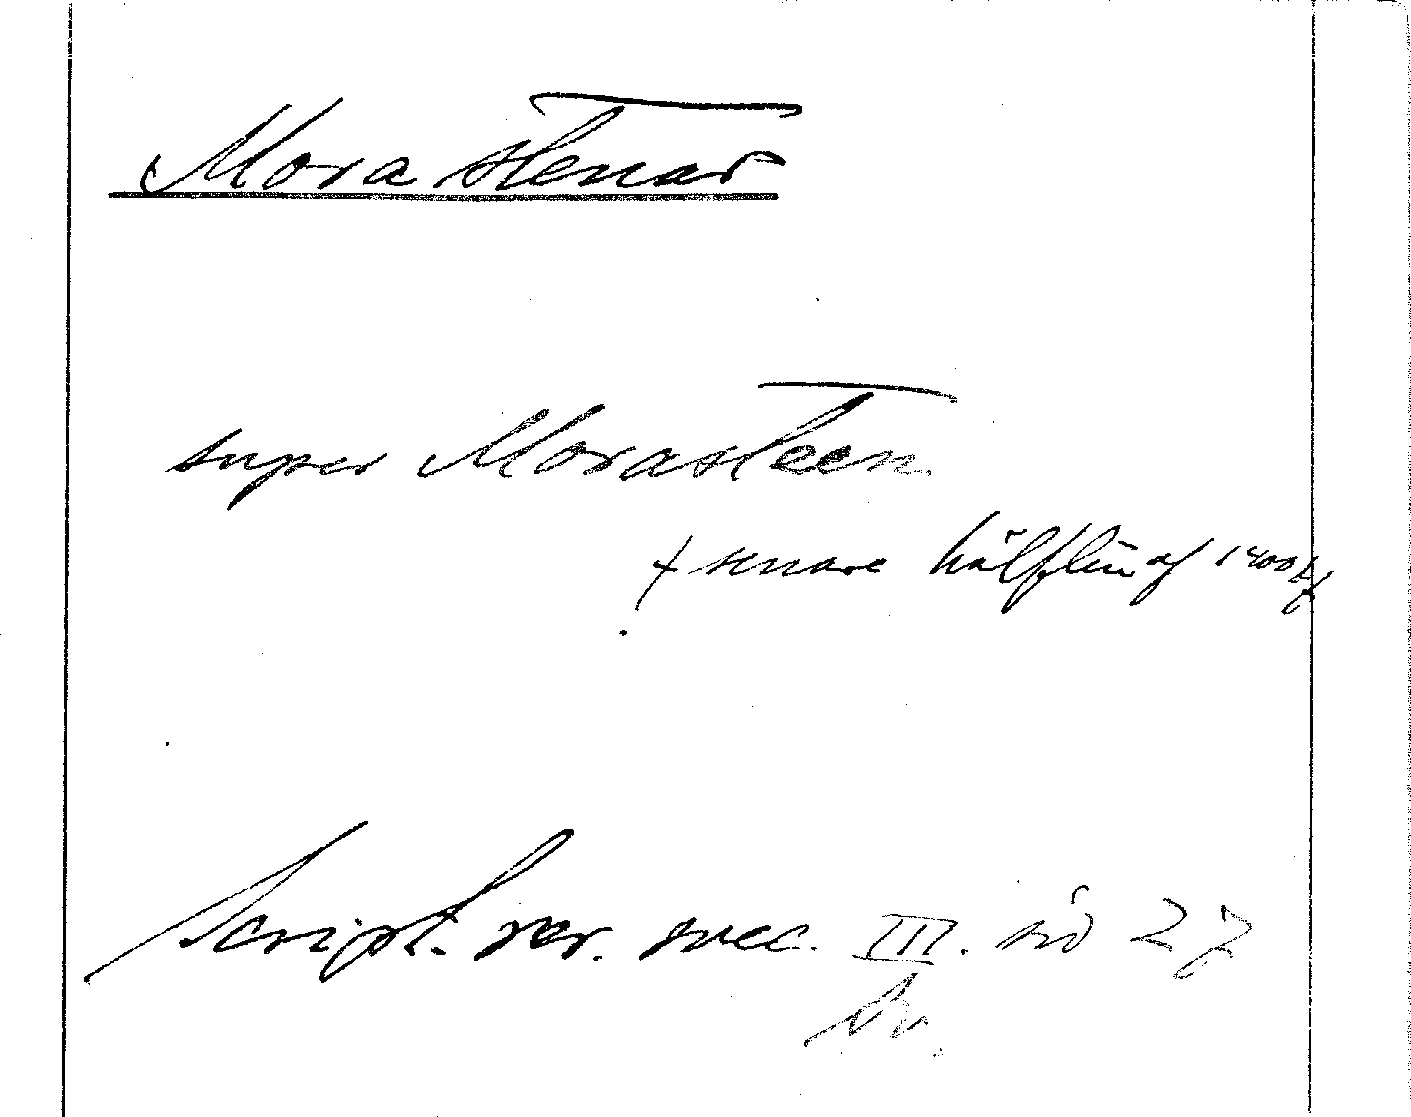 Mora stenar
super Morasteen.
senare hälften af 1400t
Script. rer. svec. III. sid 27